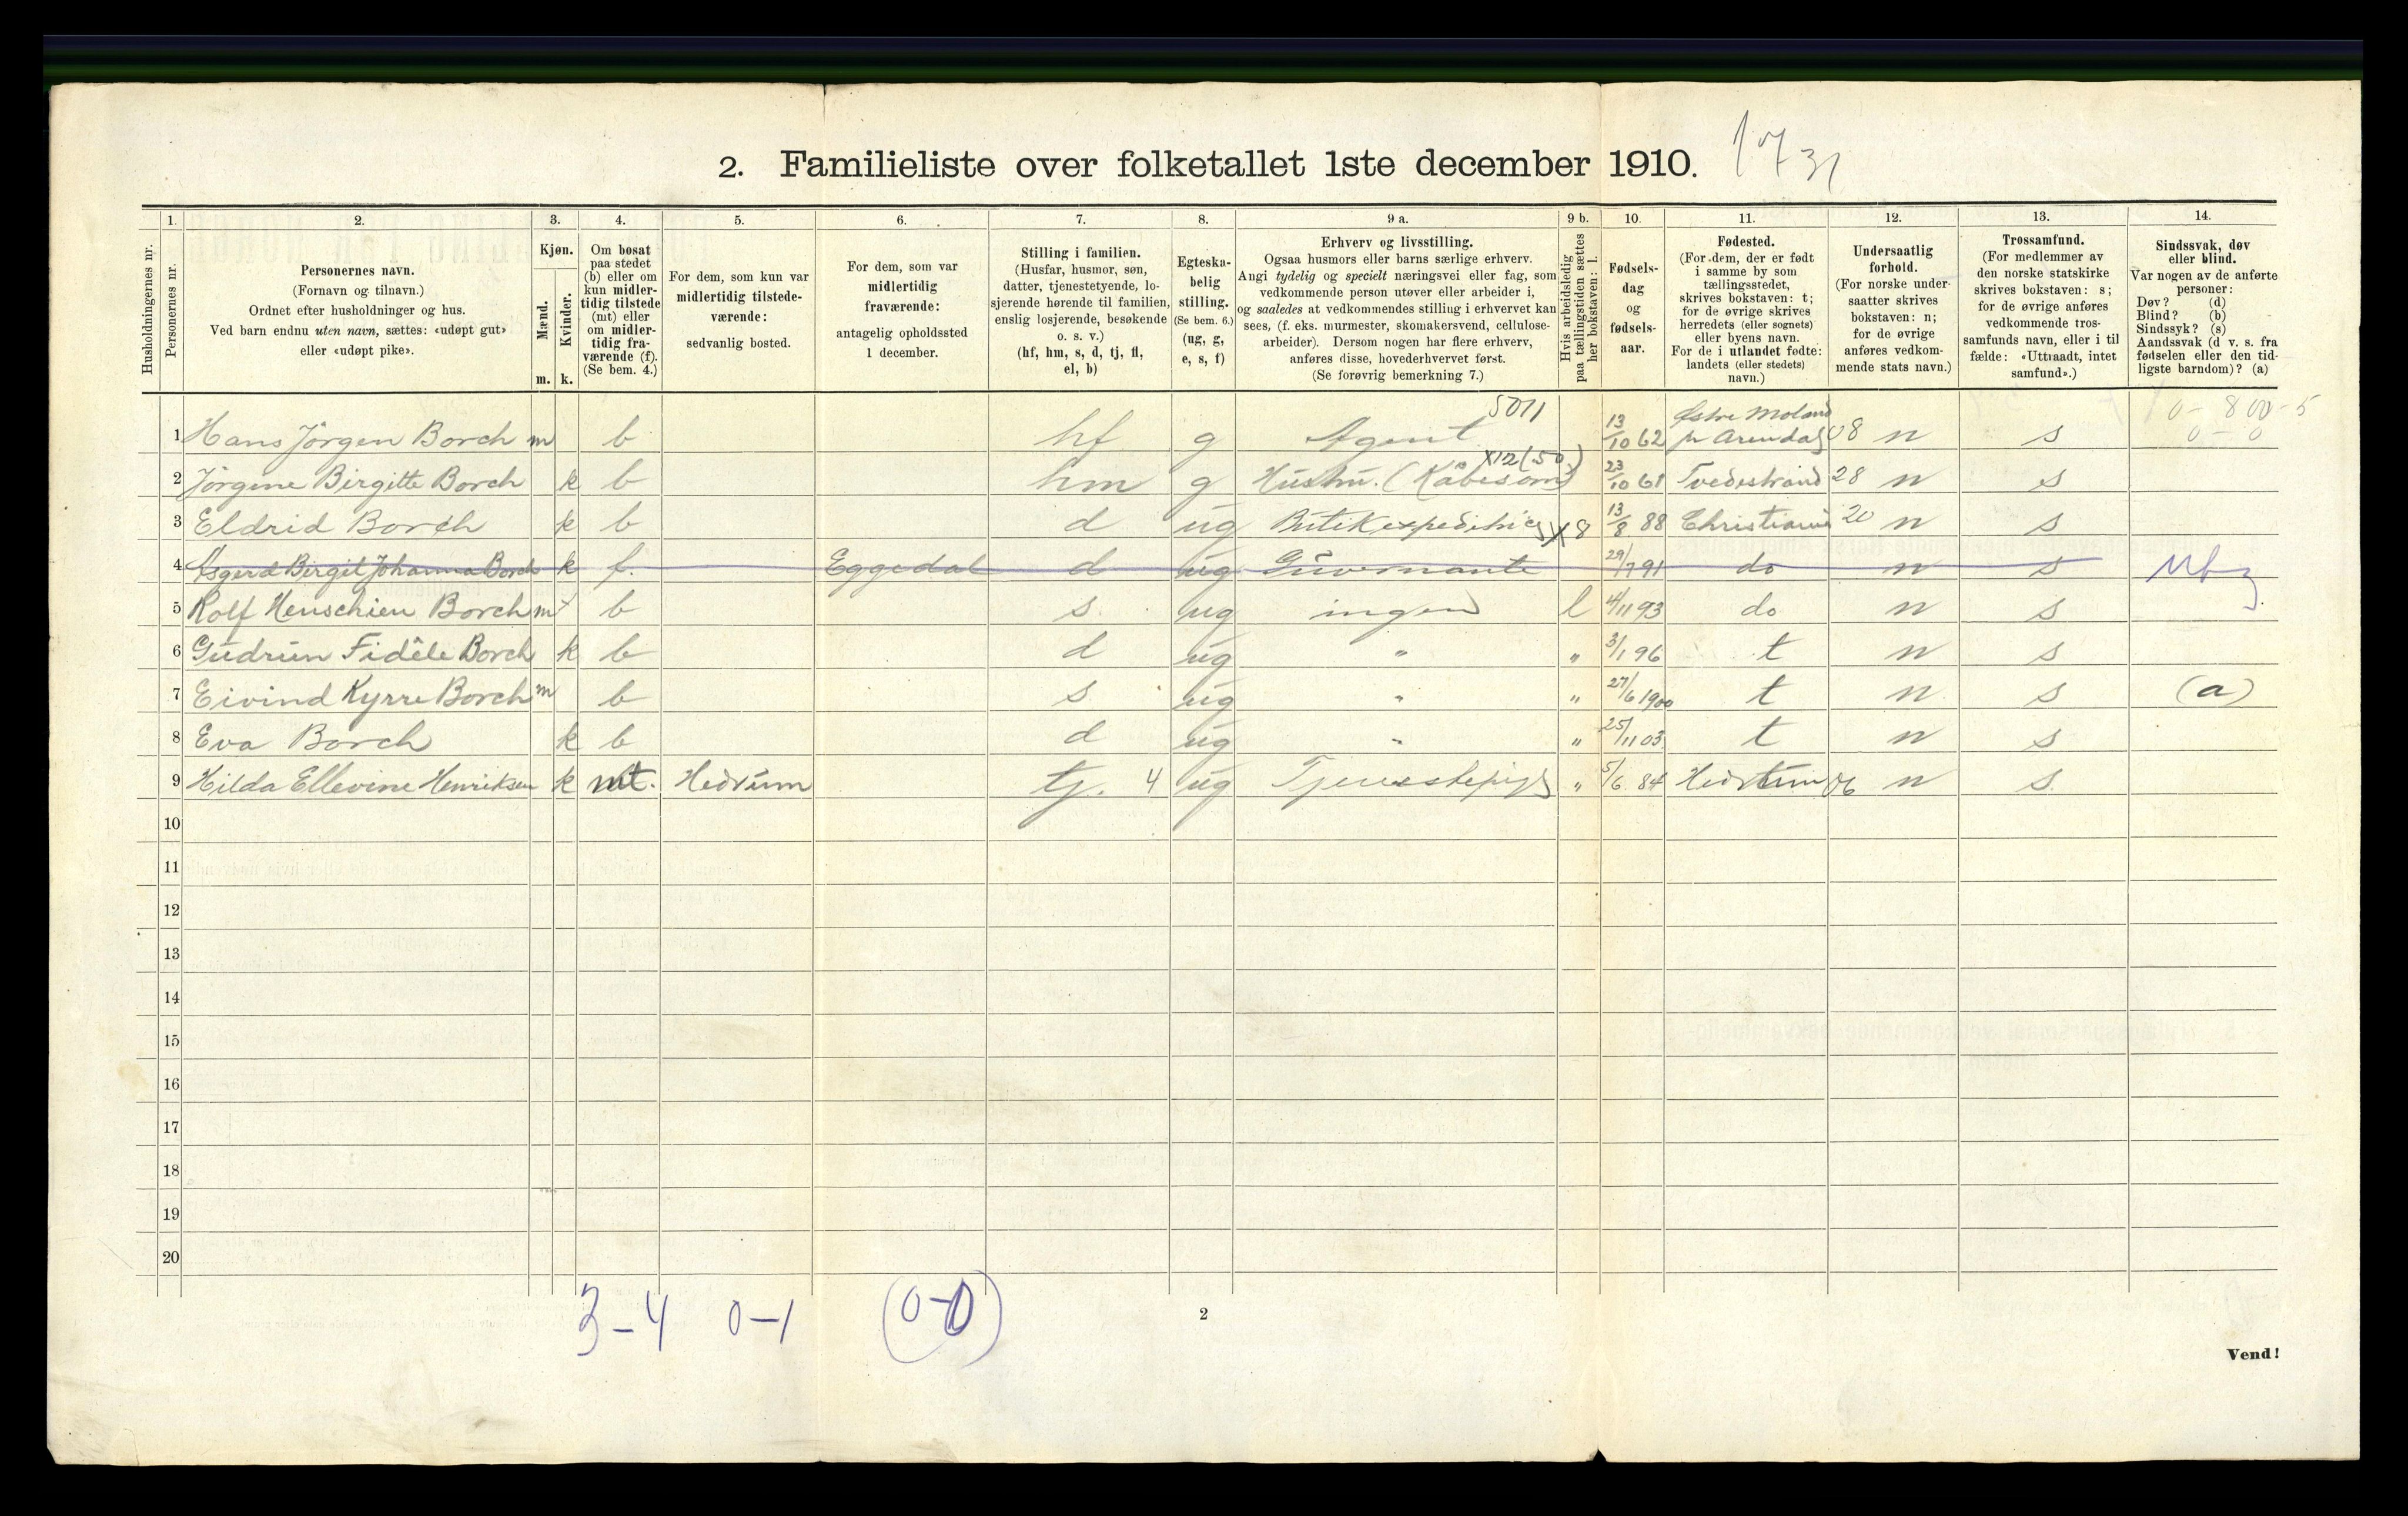 2. Familieliste over folketallet 1ste december 1910. 1731
1. 2. 3. 4. 5. 6. 7. 8. 9 a. 9 b. 10. 11. 12. 13. 14.
Husholdningernes nr.
Personernes nr.
Personernes navn.
(Fornavn og tilnavn.)
Ordnet efter husholdninger og hus.
Ved barn endnu uten navn, sættes: «udøpt gut»
eller «udøpt pike».
Kjøn.
Mænd.
Kvinder.
m. k.
Om bosat
paa stedet
(b) eller om
kun midler-
tidig tilstede
(mt) eller
om midler-
tidig fra-
værende (f).
(Se bem. 4.)
For dem, som kun var
midlertidig tilstede-
værende:
sedvanlig bosted.
For dem, som var
midlertidig
fraværende:
antagelig opholdssted
1 december.
Stilling i familien.
(Husfar, husmor, søn,
datter, tjenestetyende, lo-
sjerende hørende til familien,
enslig losjerende, besøkende
o. s. v.)
(hf, hm, s, d, tj, fl,
el, b)
Egteska-
belig
stilling.
(Se bem. 6.)
(ug, g,
e, s, f)
Erhverv og livsstilling.
Ogsaa husmors eller barns særlige erhverv.
Angi tydelig og specielt næringsvei eller fag, som
vedkommende person utøver eller arbeider i,
og saaledes at vedkommendes stilling i erhvervet kan
sees, (f. eks. murmester, skomakersvend, cellulose-
arbeider). Dersom nogen har flere erhverv,
anføres disse, hovederhvervet først.
(Se forøvrig bemerkning 7.)
Hvis arbeidsledig
paa tællingstiden sættes
her bokstaven: l.
Fødsels-
dag
og
fødsels-
aar.
Fødested.
(For dem, der er født
i samme by som
tællingsstedet,
skrives bokstaven: t;
for de øvrige skrives
herredets (eller sognets)
eller byens navn.
For de i utlandet fødte:
landets (eller stedets)
navn.)
Undersaatlig
forhold.
(For norske under-
saatter skrives
bokstaven: n;
for de øvrige
anføres vedkom-
mende stats navn.)
Trossamfund.
(For medlemmer av
den norske statskirke
skrives bokstaven: s;
for de øvrige anføres
vedkommende tros-
samfunds navn, eller i til
fælde: «Uttraadt, intet
samfund».)
Sindssvak, døv
eller blind.
Var nogen av de anførte
personer:
Døv? (d)
Blind? (b)
Sindssyk? (s)
Aandssvak (d v. s. fra
fødselen eller den tid-
ligste barndom)? (a)
5011 Østre Moland 0-800-5
1 Hans Jörgen Borch m b hf g Agent 13/10 62 pr Arendal 08 n s 0-0
X12(50)
2 Jörgine Birgitte Borch k b hm g Hustru. (Kåbesøm) 23/10 61 Tvedestrand 28 n s
3 Eldrid Borch k b d ug Butikexpeditrice X8 13/8 88 Christiania 20 n s
4 Asgerd Birgit Johanna Borch k f. Eggedal d ug Guvernante 29/7 91 do n s
5 Rolf Henschien Borch m b s. ug ingen l 4/11 93 do n s
6 Gudrun Fidéle Borch k b d ug " " 3/1 96 t n s
7 Eivind Kyrre Borch m b s ug " " 27/6 1900 t n s (a)
8 Eva Borch k b d ug " " 25/11 03 t n s
9 Hilda Ellevine Henriksen k mt. Hedrum tj. 4 ug Tjenestepige " 5/6 84 Hedrum 06 n s.
10
11
12
13
14
15
16
17
18
19
20
3-4 0-1 (0-0)
2
Vend!